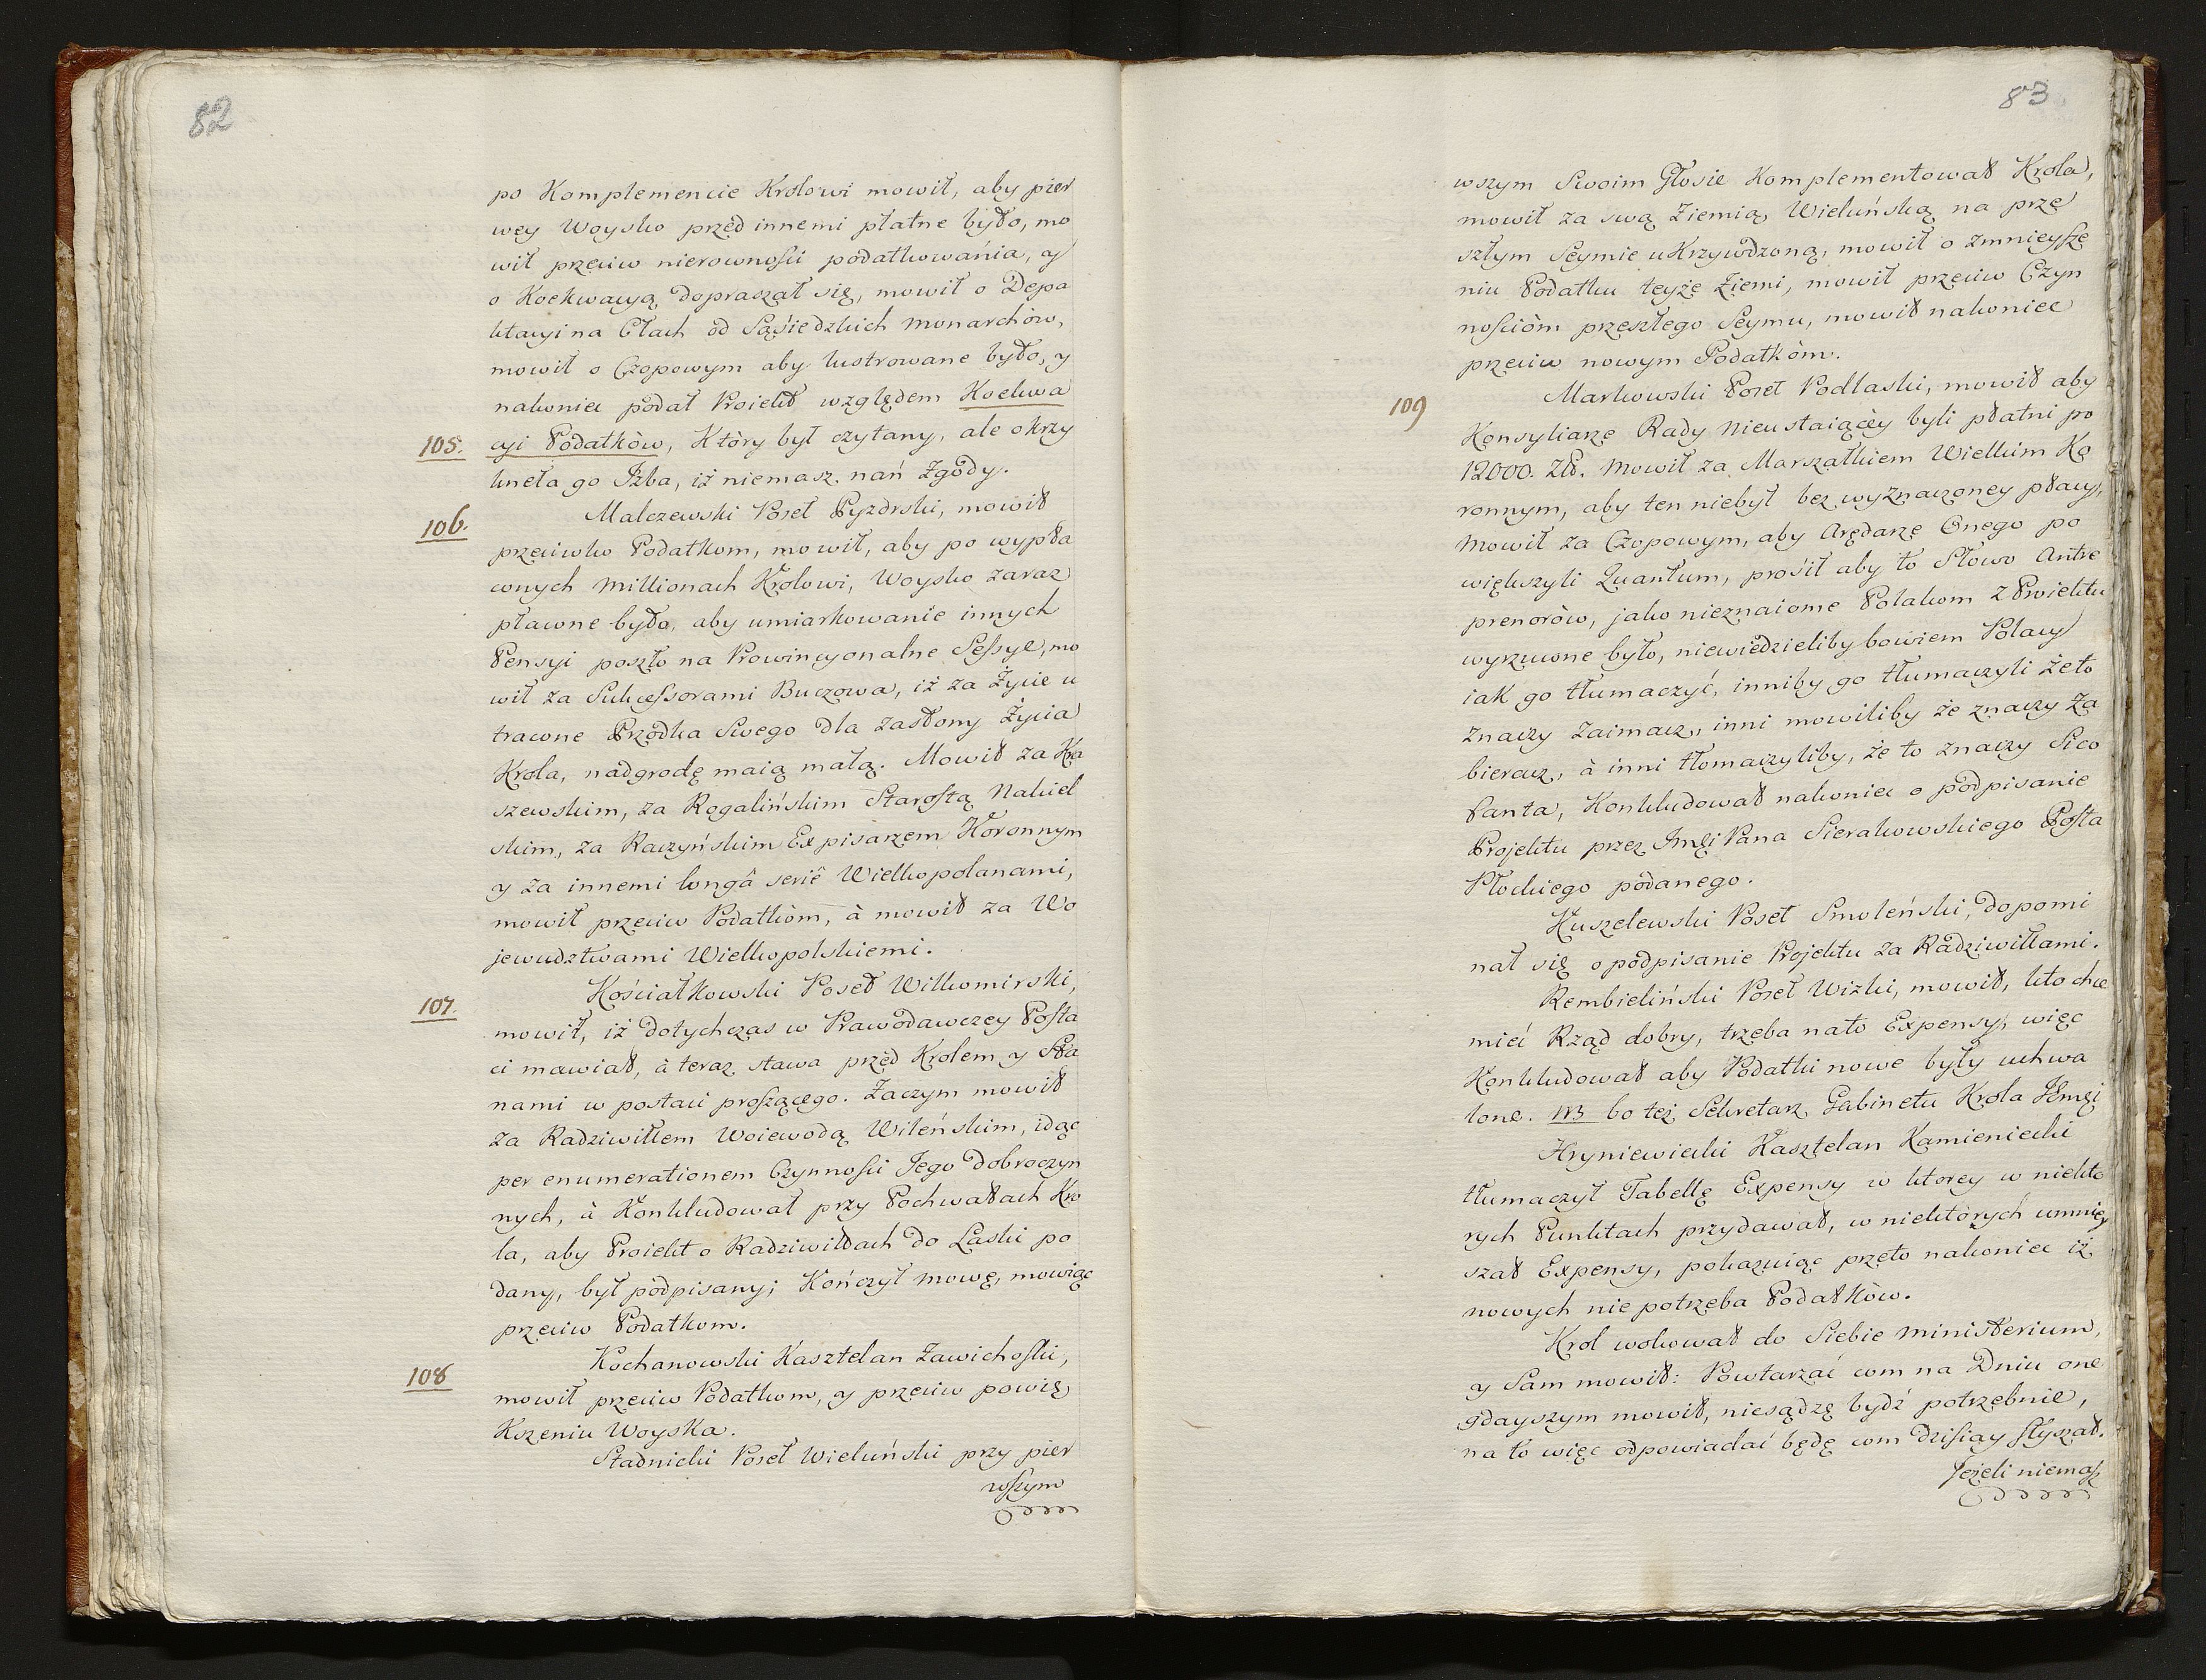 82
po Komplemencie Krolowi mowił, aby pier
wey Woysko przed innemi płatne było, mo
wił przeciw nierownosci podatkowánia, y
o Koekwacyą dopraszał się, mowił o Depa
ktacyi na Cłach od Sąsiedzkich Monarchòw,
mowił o Czopowym aby lustrowane było, y
nakoniec podał Proiekt względem Koekwa
105. cyi Podatkòw, Ktòry był czytany, ale okrzy
kneła go Jzba, iż niemasz nań Zgody.
106. Malczewski Poseł Pyzdrski, mowił
przeciwko Podatkom, mowił, aby po wypła
conych Millionach Krolowi, Woysko zaraz
płacone było, aby umiarkowanie innych
Pensyi poszło na Prowincyonalne Sessye, mo
wił za Sukcessorami Buczowa, iż za Życie u
tracone Przodka Swego dla zasłony Życia
Krola, nadgrodę maią małą. Mowił za Kra
szewskim, za Rogalińskim Starostą Nakiel
skim, za Raczyńskim Expisarzem Koronnym
y za innemi longâ seriê Wielkopolanami,
mowił przeciw Podatkòm, à mowił za Wo
jewudztwami Wielkopolskiemi.
107. Kościałkowski Poseł Wilkomirski,
mowił, iż dotychczas w Prawodawczey Posta
ci mawiał, à teraz stawa przed Krolem y Sta
nami w postaci proszącego. Zaczym mowił
za Radziwiłłem Woiewodą Wileńskim, idąc
per enumerationem Czynnosci Jego dobroczyn
nych, à Konkludował przy Pochwałach Kro
la, aby Proiekt o Radziwiłłach do Laski po
dany, był podpisany; Kończył mowę, mowiąc
przeciw Podatkom.
108 Kochanowski Kasztelan Zawichoski,
mowił przeciw Podatkom, y przeciw powię
Kszeniu Woyska.
Stadnicki Poseł Wieluński przy pier
wszym
83
wszym Swoim Głosie Komplementował Krola,
mowił za swą Ziemią Wieluńską na prze
szłym Seymie uKrzywdzoną, mowił o zmnieysze
niu Podatku teyże Ziemi, mowił przeciw Czyn
nosciòm przeszłego Seymu, mowił nakoniec
przeciw nowym Podatkòm.
109 Markowski Poseł Podlaski, mowił aby
Konsyliarze Rady Nieustaiącèy byli płatni po
12000. Zł. Mowił za Marszałkiem Wielkim Ko
ronnym, aby ten niebył bez wyznaczoney płacy,
Mowił za Czopowym, aby Arędarze Onego po
większyli Quantum, prosił aby to Słowo Antre
prenoròw, jako nieznaiome Polakom z Proiektu
wyrzucone było, niewiedzieliby bowiem Polacy
iak go tłumaczyć, inniby go tłumaczyli że to
znaczy Zaimacz, inni mowiliby że znaczy Za
bieracz, à inni tłomaczyliby, że to znaczy Sico
fanta, Konkludował nakoniec o podpisanie
Projektu przez Jmci Pana Sierakowskiego Posła
Płockiego podanego.
Kuszelewski Poseł Smoleński, dopomi
nał się o podpisanie Projektu za Radziwiłłami.
Rembieliński Poseł Wizki, mowił, kto chce
mieć Rząd dobry, trzeba nato Expensy, więc
Konkludował aby Podatki nowe były uchwa
lone. NB bo też Sekretarz Gabinetu Krola Jmci
Hryniewiecki Kasztelan Kamieniecki
tłumaczył Tabellę Expensy w ktorey w niekto
rych Punktach przydawał, w niektòrych umniey
szał Expensy, pokazuiąc przeto nakoniec iż
nowych nie potrzeba Podatkòw.
Krol wokował do Siebie Ministerium,
y Sam mowił: Powtarzać com na Dniu one
gdayszym mowił, niesądzę bydź potrzebnie,
na to więc odpowiadać będę com dzisiay słyszał.
Jeżeli niemasz